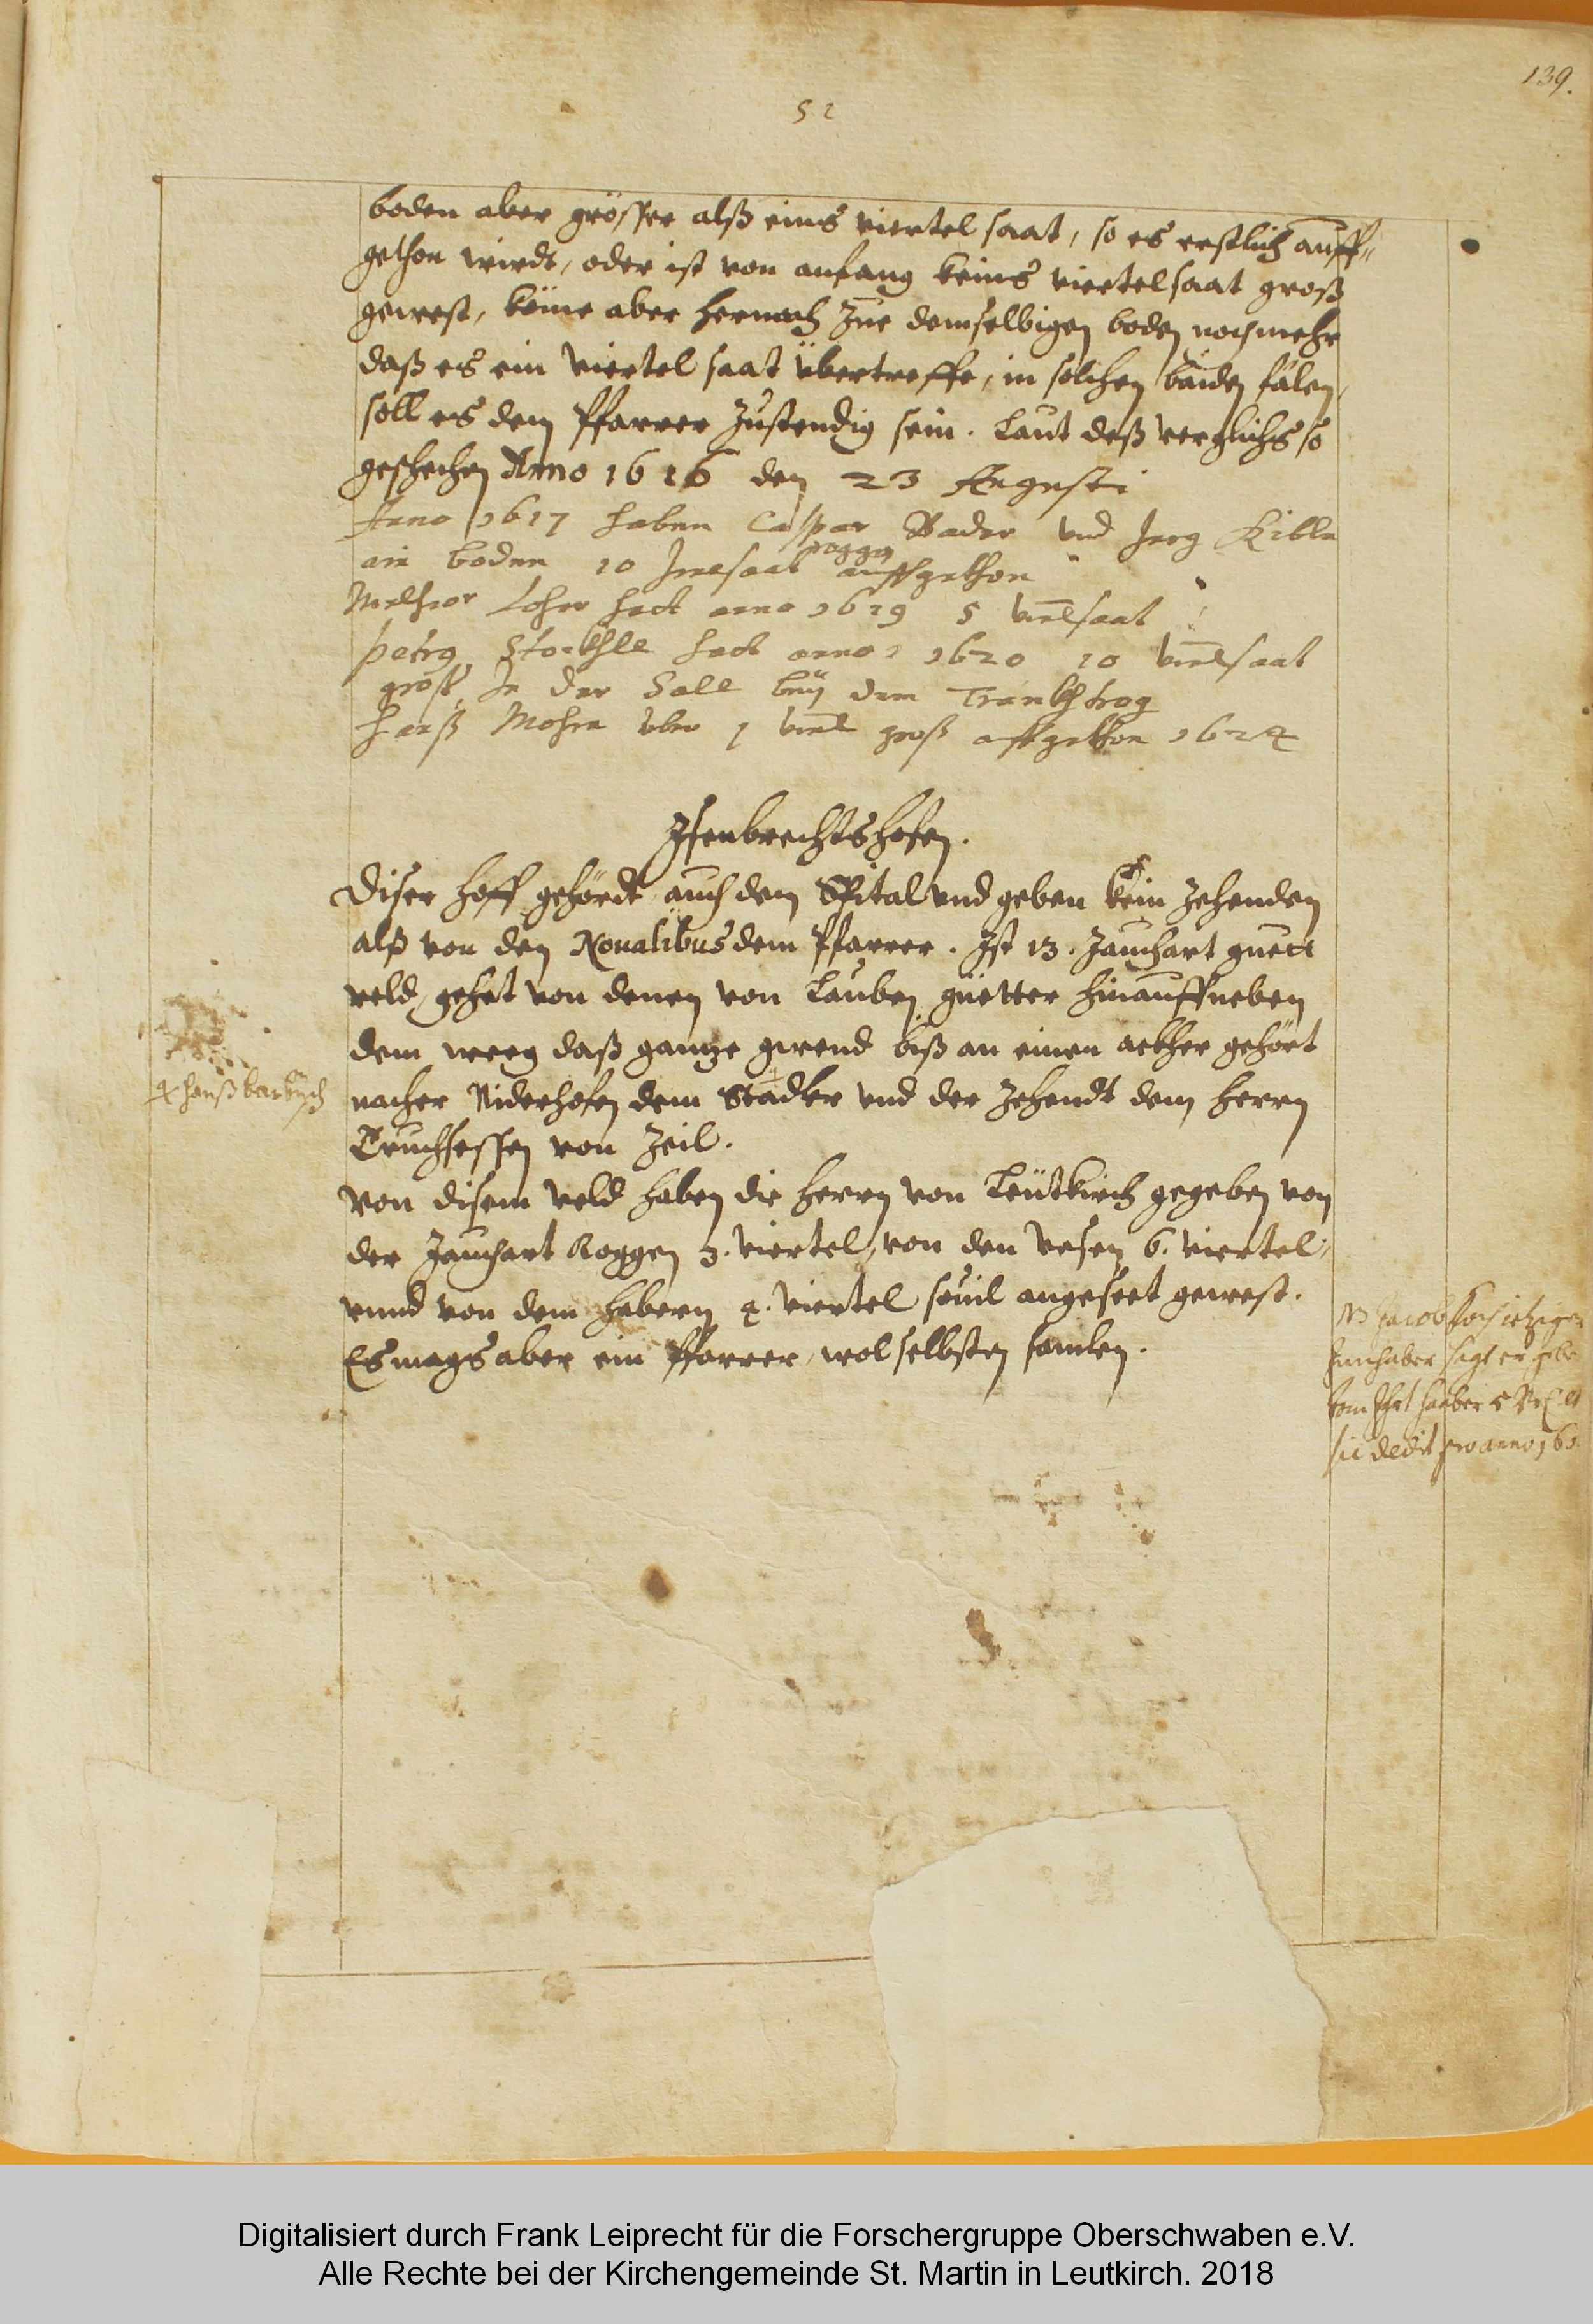 139.
52
boden aber grösser alß eins viertel saat, so es erstlich auff„
gethon wirdt, oder ist von anfang keins viertel saat groß
gewest, käme aber hernach zue demselbigen boden noch mehr
daß es ein viertel saat übertreffe, in solchen baiden fälen,
soll es dem Pfarrer zustendig sein. Laut deß verglichs so
geschechen Anno 1616 den 23 Augusti
Anno 1617 haben Caspar Bader und Jerg Kible
ain boden 10 Imesaat roggen auffgethon
Melchior Loher hadt anno 1619 5 viertlsaat
Petrus Stöckhle hadt anno 1620 10 viertlsaat
groß, In der Sall beÿ dem Tränkhtrog
Hanß Mohrn uber 1 viertl groß affgethon 1624
Isenbrechtshofen.
Diser hoff gehördt auch dem Spital und geben kein Zehenden
alß von den Noualibus dem Pfarrer. Ist 13. Jauchart guett
veld, gehet von denen von Lauben güetter hinauff neben
dem weeg daß gantze gwend biß an einen ackher gehört
nacher Niderhofen dem Stadler und der Zehendt dem herrn
Truchsessen von Zeil.
4 hanß
Von disem veld haben die herrn von Leütkirch gegeben von
der Jauchart Roggen 3. viertel, von den vesen 6. viertel,
unnd von dem habern 4. viertel souil angeseet gewest.
Es mags aber ein Pfarrer, wol selbsten samlen.
NB Jacob Koch ietziger
Innhaber sagt er gebe
vom haber 5
sic dedit pro anno 16
Digitalisiert durch Frank Leiprecht für die Forschergruppe Oberschwaben e.V.
Alle Rechte bei der Kirchengemeinde St. Martin in Leutkirch. 2018